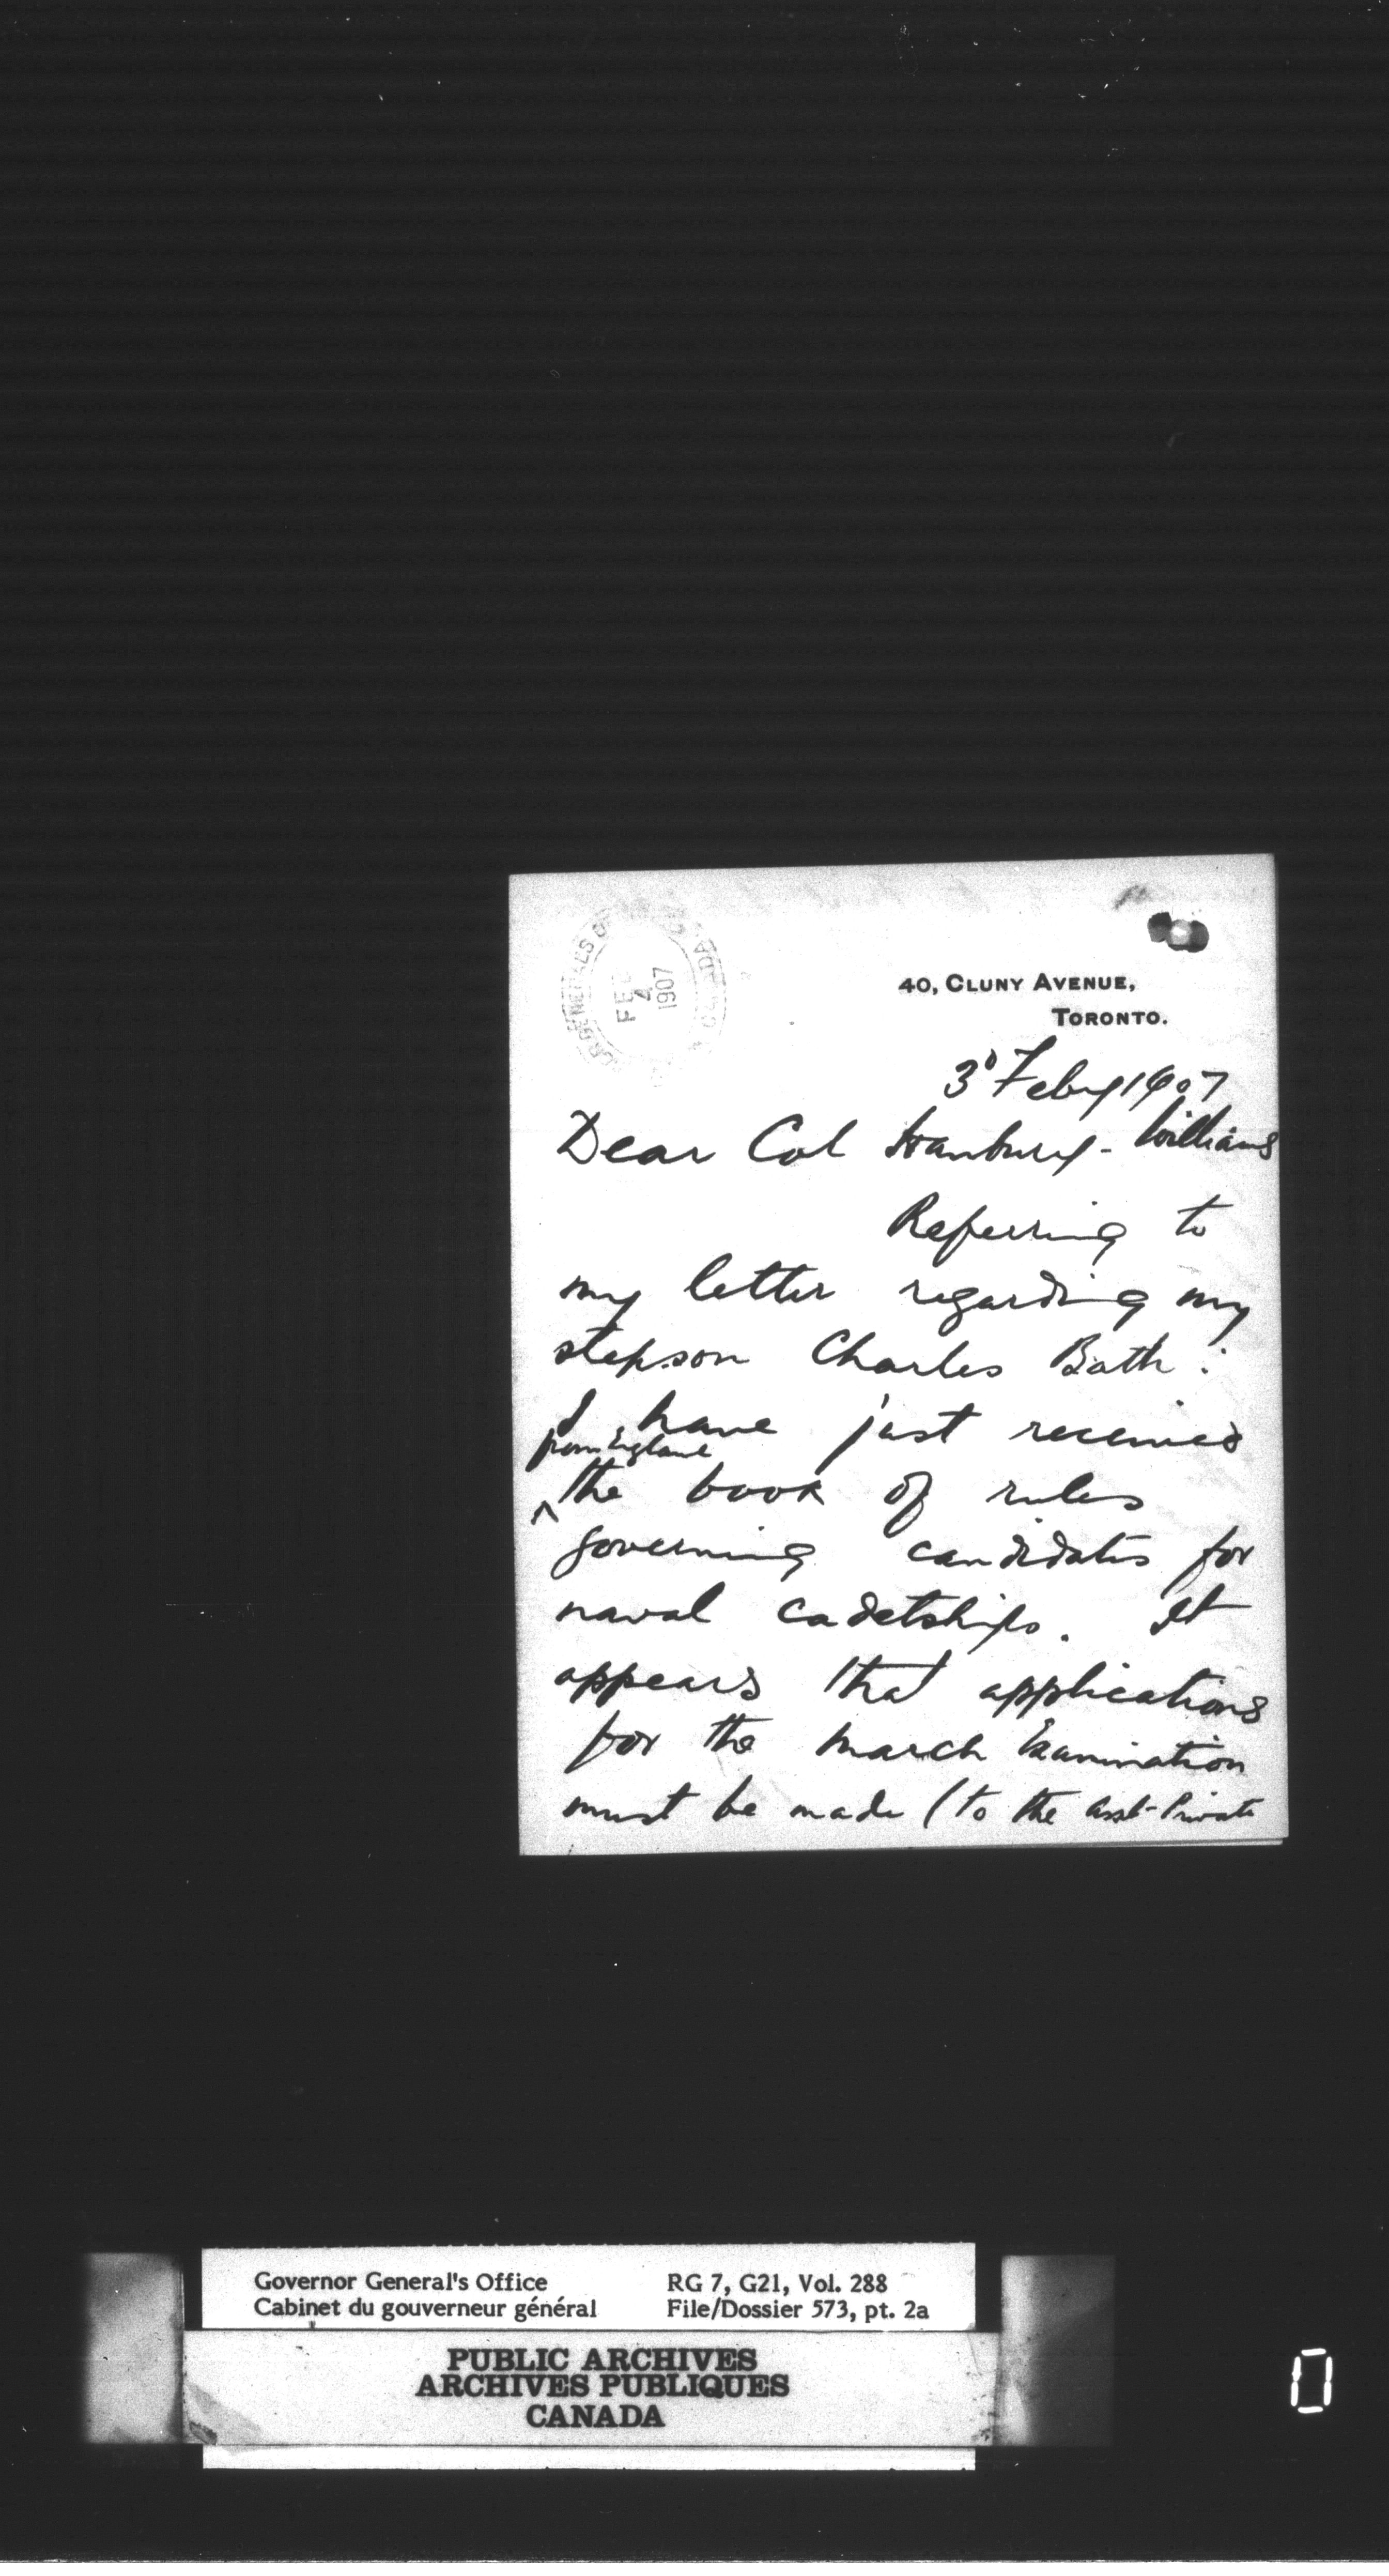 FEB
4
1907
40, CLUNY AVENUE,
TORONTO.
3d Feby 1907
Dear Col Hanbury-Williams
Referring to
my letter regarding my
stepson Charles Bath :
I have just received
from England
^ the book of rules
governing candidates for
naval cadetships. It
appears that applications
for the March Examination
must be made (to the Asst-Private
Governor General's Office
Cabinet du gouverneur général
RG 7, G21, Vol. 288
File/Dossier 573, pt. 2a
PUBLIC ARCHIVES
ARCHIVES PUBLIQUES
CANADA
0